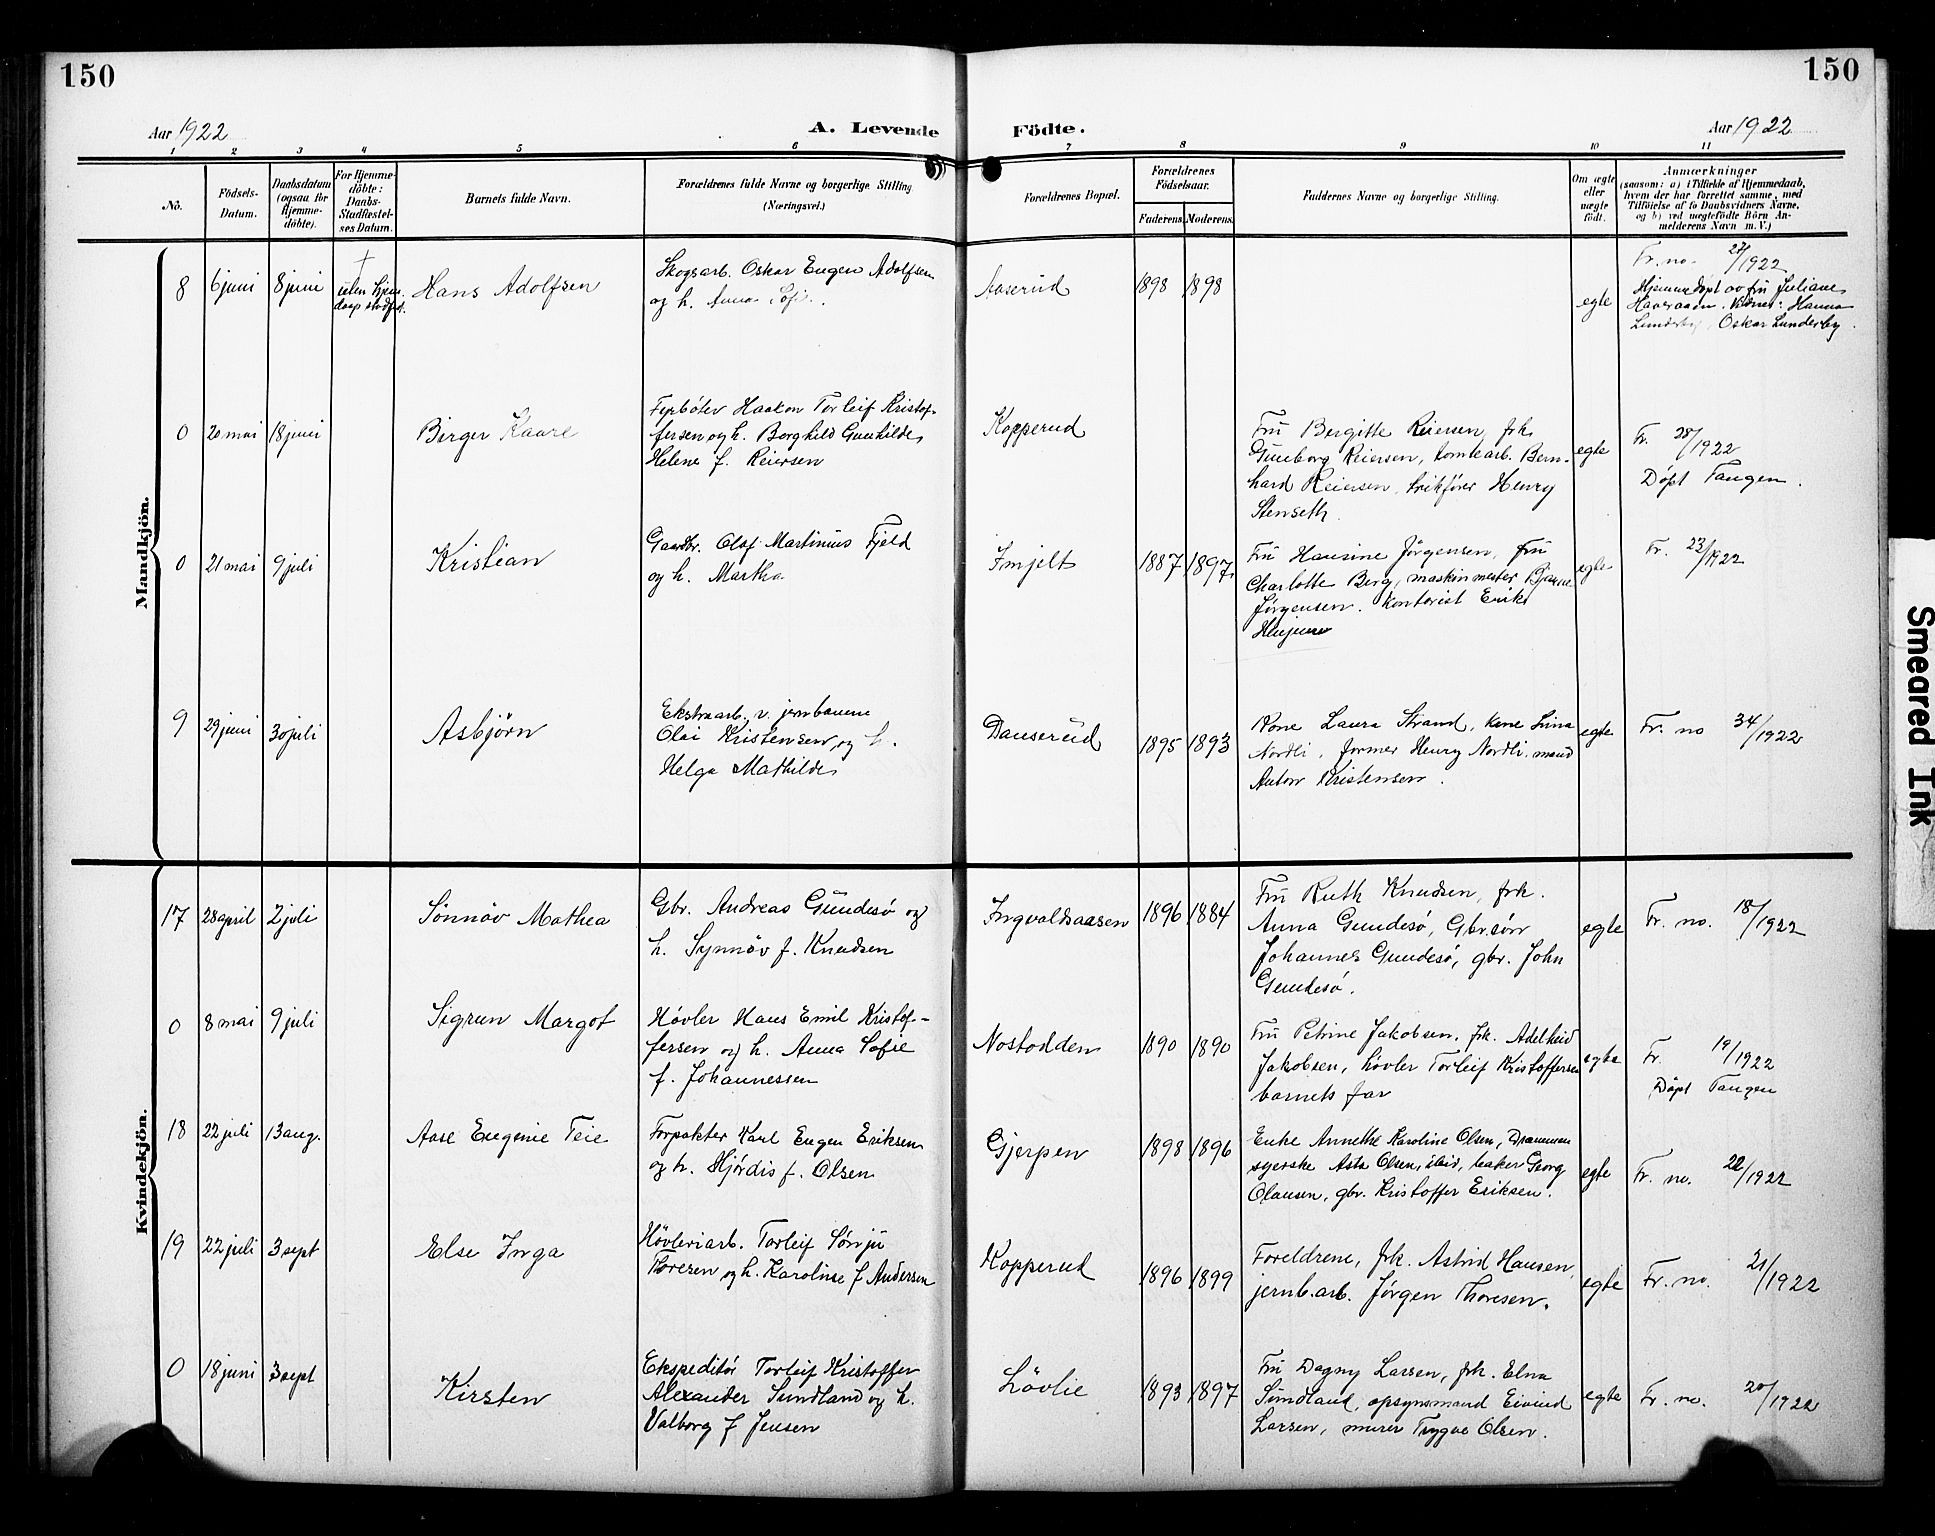 150
150
Aar 1922
A. Levende
Födte.
Aar 1922
1 2 3 4 5 6 7 8 9 10 11
No.
Födsels-
Datum.
Daabsdatum
(ogsaa for
Hjemme-
döbte).
For Hjemme-
döbte:
Daabs-
Stadfæstel-
ses Datum.
Barnets fulde Navn.
Forældrenes fulde Navne og borgerlige Stilling
(Næringsvei.)
Forældrenes Bopæl.
Forældrenes
Födselsaar.
Faderens.
Moderens.
Faddernes Navne og borgerlige Stilling.
Om ægte
eller
uægte
födt.
Anmærkninger
(saasom: a) i Tilfælde af Hjemmedaab,
hvem der har forrettet samme, med
Tilföielse af to Daabsvidners Navne,
og b) ved uægtefödte Börn An-
melderens Navn m. V.)
Mandkjön.
8
6 juni
8 juni
†
uten hjem
daap stadf.
Hans Adolfsen
Skogsarb. Oskar Eugen Adolfsen
og h. Anna
Aaserud
1898
1898
egte
Fr. no. 27/1922
Hjemmedöpt av fru Juliane
Vidner: Hanna
Oskar Lunderby
0
20 mai
18 juni
Birger Kaare
Fyrböter Haakon Torleif Kristof-
fersen og h. Borghild Gunhilde
Helene f. Reiersen
Kopperud
Fru Bergitte Reiersen, frk.
Gunborg Reiersen, tomtearb. Bern-
hard Reiersen, Henry
Stenseth
egte
Fr. 28/1922
Döpt Tangen.
0
21 mai
9 juli
Kristian
Gaardbr. Olaf Martinius Fjeld
og h. Martha
Smjelt
1887
1897
Fru Hansine Jørgensen, fru
Charlotte Berg, maskinmester Bjarne
Jørgensen. Kontorist
egte
Fr. 23/1922
9
29 juni
30 juli
Asbjörn
Ekstraarb. v. jernbanene
Olai Kristensen og h.
Helga Mathilde
Danserud
1895
1893
Kone Laura Strand, kone Lina
Nordli, former Henry Nordli. mand
Anton Kristensen.
egte
Fr. no 34/1922
Kvindekjön.
17
28 april
2 juli
Sönnöv Mathea
Gbr. Andreas Gundesö og
h. Synnöv f. Knudsen
Ingvaldsaasen
1896
1884
Fru Ruth Knudsen, frk.
Anna Gundesö, Gbr.sön
Johannes Gundesö, gbr. John
Gundesö.
egte
Fr. no. 18/1922
0
8 mai
9 juli
Sigrun Margot
Hövler Hans Emil Kristof-
fersen og h. Anna Sofie
f. Johannessen
Nostodden
1890
1890
Fru Petrine Jakobsen, frk. Adelheid
Jakobsen, hövler Torleif Kristoffersen
barnets far
egte
Fr. 19/1922
Döpt Tangen
18
22 juli
13 aug.
Aase Eugenie Teie
Forpakter Karl Eugen Eriksen
og h. Hjördis f. Olsen
Gjerpen
1898
1896
Enke Annethe Karoline Olsen, Drammen
syerske Asta Olsen, ibid, baker Georg
Olausen, gbr. Kristoffer Eriksen.
egte
Fr. no. 22/1922
19
22 juli
3 sept
Else Inga
Hövleriarb. Torleif
Thoresen og h. Karoline f. Andersen
Kopperud
1896
1899
Foreldrene, frk. Astrid Hansen,
jernb.arb. Jørgen Thoresen.
egte
Fr. no. 21/1922
0
18 juni
3 sept
Kirsten
Ekspeditör Torleif Kristoffer
Alexander Sundland og h.
Valborg f. Jensen
Lövlie
1893
1897
Fru Dagny Larsen, frk. Elna
Sundland, opsynsmand Eivind
Larsen, murer Trygve Olsen.
egte
Fr. no. 20/1922
Smeared Ink